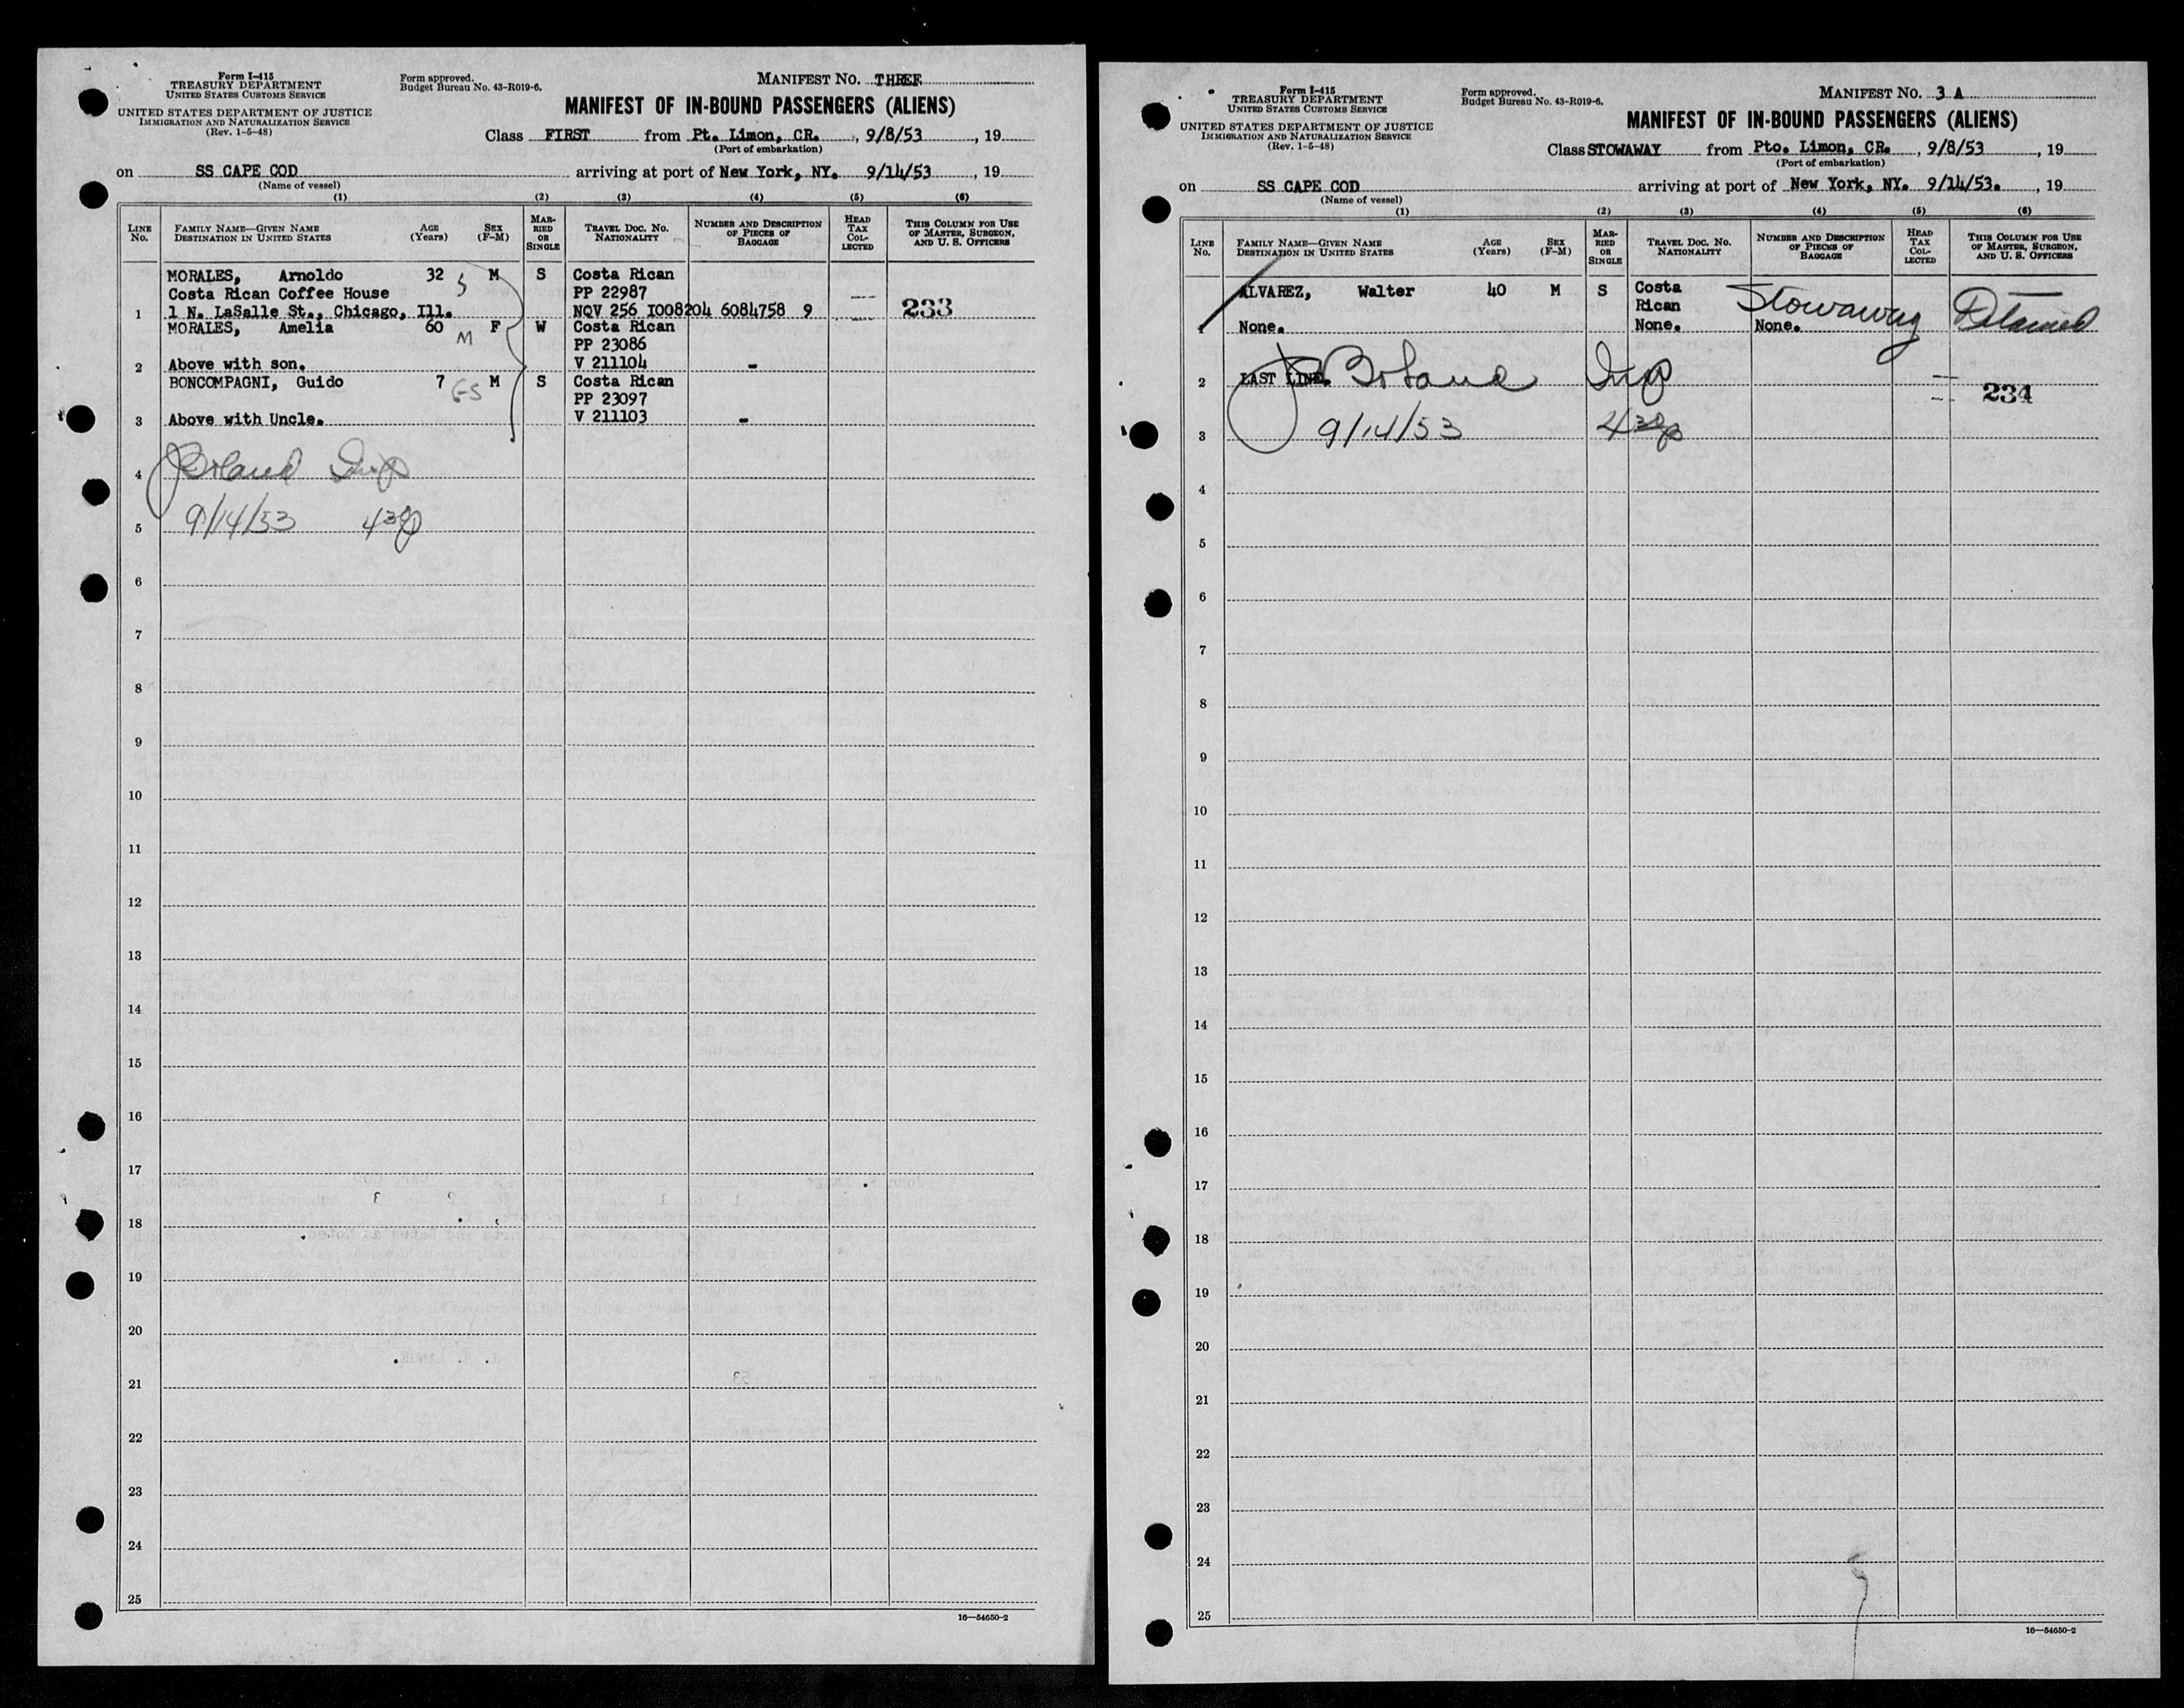 Form I-415
TREASURY DEPARTMENT
UNITED STATES CUSTOMS SERVICE
UNITED STATES DEPARTMENT OF JUSTICE
IMMIGRATION AND NATURALIZATION SERVICE
(Rev. 1-5-48)
Form approved.
Budget Bureau No. 43-R019-6.
MANIFEST No. THREE
MANIFEST OF IN-BOUND PASSENGERS (ALIENS)
Class FIRST from Pt. Limon, CR., 9/8/53, 19
(Port of embarkation)
on SS CAPE COD arriving at port of New York, NY. 9/14/53, 19
(Name of vessel)
(1) (2) (3) (4) (5) (6)
LINE No. FAMILY NAME—GIVEN NAME DESTINATION IN UNITED STATES AGE (Years) SEX (F-M) MARRIED OR SINGLE TRAVEL DOC. NO. NATIONALITY NUMBER AND DESCRIPTION OF PIECES OF BAGGAGE HEAD TAX COLLECTED THIS COLUMN FOR USE OF MASTER, SURGEON, AND U. S. OFFICERS
MORALES, Arnoldo 32 S M S Costa Rican
Costa Rican Coffee House PP 22987
1 1 N. LaSalle St., Chicago, Ill. NQV 256 I008204 6084758 9 --- 233
MORALES, Amelia 60 M F W Costa Rican
PP 23086
2 Above with son. V 211104 -
BONCOMPAGNI, Guido 7 M S Costa Rican
PP 23097
3 Above with Uncle. V 211103 -
4 JBoland Insp
9/14/53 430p
5
6
7
8
9
10
11
12
13
14
15
16
17
18
19
20
21
22
23
24
25
16—54650-2
Form I-415
TREASURY DEPARTMENT
UNITED STATES CUSTOMS SERVICE
UNITED STATES DEPARTMENT OF JUSTICE
IMMIGRATION AND NATURALIZATION SERVICE
(Rev. 1-5-48)
Form approved.
Budget Bureau No. 43-R019-6.
MANIFEST No. 3 A
MANIFEST OF IN-BOUND PASSENGERS (ALIENS)
Class STOWAWAY from Pto. Limon, CR., 9/8/53, 19
(Port of embarkation)
on SS CAPE COD arriving at port of New York, NY. 9/14/53., 19
(Name of vessel)
(1) (2) (3) (4) (5) (6)
LINE No. FAMILY NAME—GIVEN NAME DESTINATION IN UNITED STATES AGE (Years) SEX (F-M) MARRIED OR SINGLE TRAVEL DOC. NO. NATIONALITY NUMBER AND DESCRIPTION OF PIECES OF BAGGAGE HEAD TAX COLLECTED THIS COLUMN FOR USE OF MASTER, SURGEON, AND U. S. OFFICERS
ALVAREZ, Walter 40 M S Costa
Rican Stowaway Detained
1 None. None. None.
2 LAST LINE. JBoland Insp --- 234
3 9/14/53 430p
4
5
6
7
8
9
10
11
12
13
14
15
16
17
18
19
20
21
22
23
24
25
16—54650-2